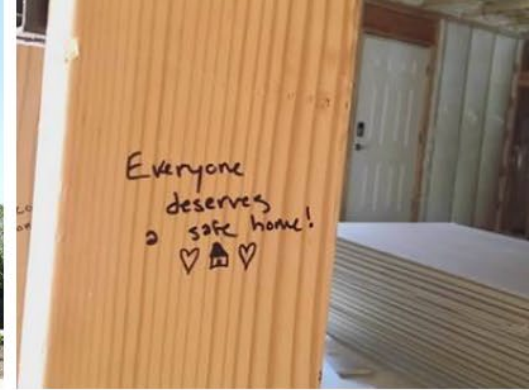 Everyone
deserves
a safe home!